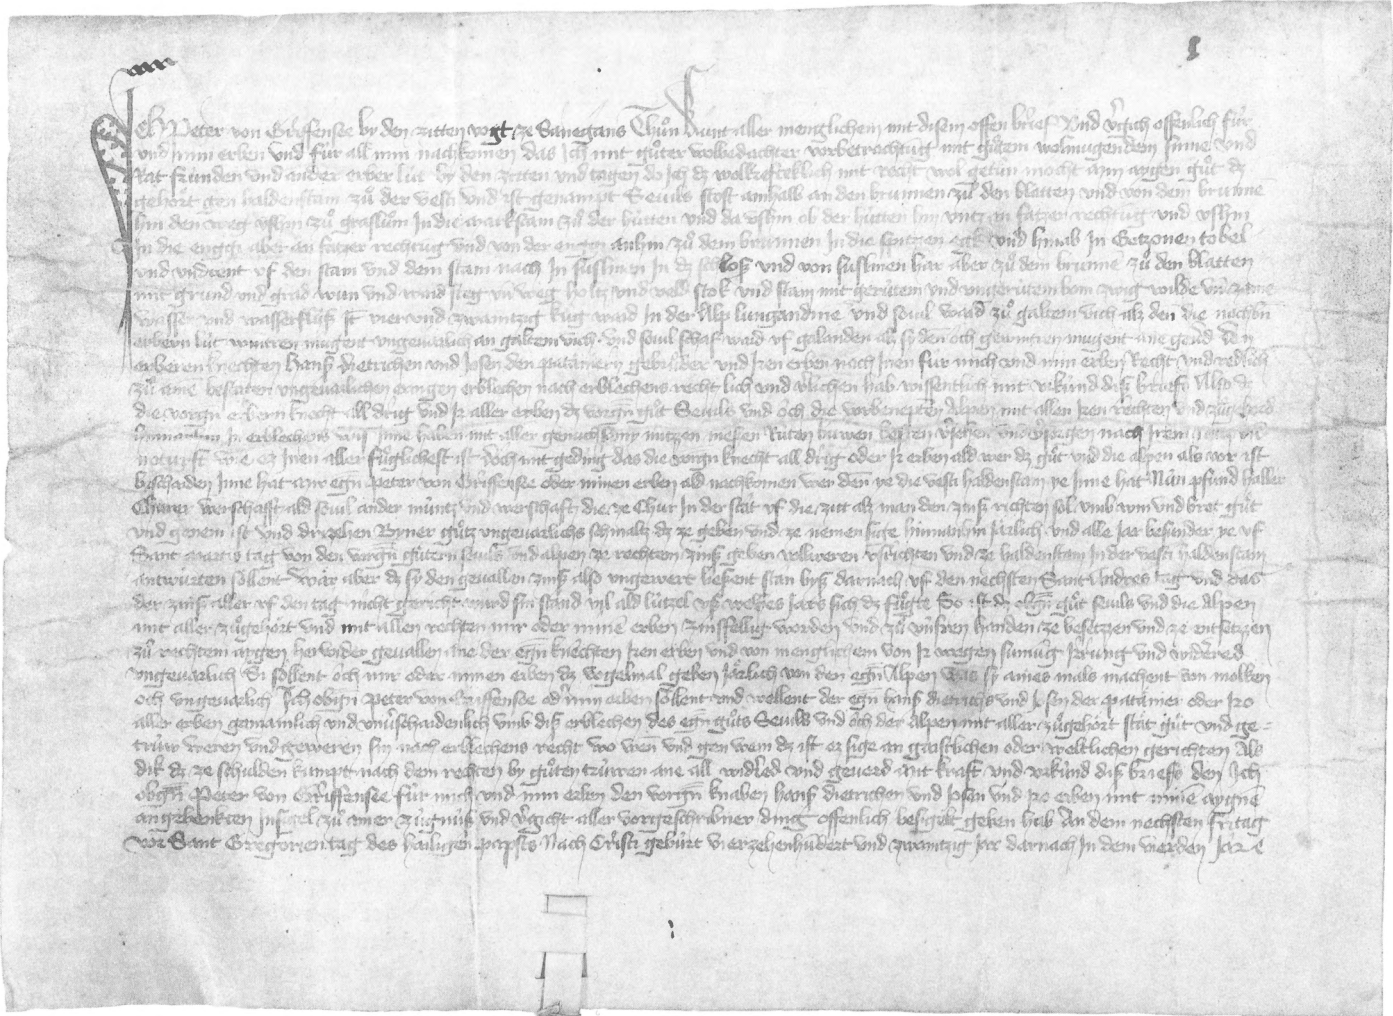 Ich Peter von Griffensee by den zitten vogt ze Sanegans Thůn kunt aller menglichem mit disem offen brief Vnd vergich offenlich für
mich vnd min erben vnd für all min nachkomen das Ich mit gůter wolbedachter vorbetrachtung mit gůtem wolmugendem sinne vnd
Rat fründen vnd ander erber lüt by den zitten vnd tagen do Ich dz wolkrefteklich mit recht wol getůn mocht min aygen gůt dz
gehört gen haldenstain zů der vesti vnd ist genampt Seuils stost ainhalb an den brunnen zů den blatten vnd von dem brunnē
hin den weg vshin zů In die zů der hütten vnd da vshin ob der hütten hin vntz in rechtung vnd vshin
In die engge aber an rechtung vnd von der zů dem brunnen In die spitzen egk vnd hinab In Getzonen tobel
vnd vf den stain vnd dem stain nach In fuslinen In dz schloß vnd von fuslinen har aber zů dem brunnē zů den blatten
mit grund vnd grad wun vnd waid steg vn̄ weg holtz vnd veld stok vnd stain mit gerütem vnd vngerütem bom zwig wilde vn̄ zame
wasser vnd wasserflüß It vier vnd zwaintzig kůg waid in der Alp lungandine vnd souil waid zů galtem vich alz den die
erbern lüt wintren mugent vngeuarlich an galtem vich vnd souil schaf waid vf galanden als sy den och gewintren mugent ane geuerd Den
erberen knechten Hanß Dietrichen vnd Josen den putanern gebrůder vnd Iren erben nach Inen für mich vnd min Erben Recht vnd redlich
zů aine besaten vngeuarlichen erblechen nach erblechens recht lich vnd verlichen hab wissentlich mit vrkünd diß briefs Also dz
die vorgn̄ erbern knecht all drig vnd Ir aller erben dz vorgn̄ gůt Seuils vnd och die vorbenepten Alpen mit allen Iren rechten vnd zůgehörd
In erblechens wis Inne haben mit aller nutzen niessen Rüten buwen besetzen vnd nach Irem nutz vn̄
noturft wie ez Inen aller fůglichest ist doch mit geding das die vorgn̄ knecht all drig oder Ir erben ald wer dz gůt vnd die alpen als vor ist
beschaiden Inne hat mir egn̄ Peter von Griffensee oder minen erben ald nachkomen wer den ye die vesti haldenstain ye Inne hat Nün pfund haller
Churer werschaft ald souil ander müntz vnd werschaft die ze Chur In der stat vf die zitt alz man den zinß richten sol vmb win vnd brot gůt
vnd genem ist vnd drizehen gůtz vngeuarlichs schmaltz dz ze geben vnd ze nemen sige hinnanhin Järlich vnd alle Jar besunder ye vf
Sant martis tag von den vorgn̄ gůtern seuils vnd alpen ze rechtem zinß geben vollweren vsrichten vnd ze haldenstain In der vesti haldenstain
antwürten söllent wär aber dz sy den geuallen zinß also vngewert liessent stan byß darnach vf den nechsten Sant Andres tag vnd das
der zinß aller vf den tag nicht gericht wurd sin stand vil ald lützel vß welhes Jars sich dz fůgte So ist dz obgn̄ gůt seuils vnd die Alpen
mit aller zůgehört vnd mit allen rechten mir oder minē erben zinsfellig worden vnd zů vnsren handen ze besetzen vnd ze entsetzen
zů rechtem aygen herwider geuallen ane der egn̄ knechten Iren erben vnd von menglichem von Ir wegen sumug Irrung vnd widerred
vngeuarlich Si söllent och mir oder minen erben dz vogelmal geben Järlich von den egn̄ Alpen Was sy aines mals machent von molken
och vngeuarlich Ich obgn̄ Peter von Griffensee od' min erben söllent vnd wellent der egn̄ hanß dietrichs vnd Josen der putaner oder Iro
aller erben gemainlich vnd vnuerschaidenlich vmb diß erblechen des egn̄ gůts Seuils vnd och der Alpen mit aller zůgehört stät gůt vnd ge=
trüw weren vnd geweren sin nach erblechens recht wo wen vnd gen wem dz ist ez sige an gaistlichen oder weltlichen gerichten Als
dik dz ze schulden kumpt nach dem rechten by gůten trüwen ane all widred vnd geuerd mit kraft vnd vrkünd diß briefs den Ich
obgn̄ Peter von Griffensee für mich vnd min erben den vorgn̄ knaben hanß dietrichen vnd Josen vnd Iro erben mit minē aygnē
angehenkten Insigel zů ainer zügnüß vnd vergicht aller vorgeschribner ding offenlich besigelt geben hab An dem nechsten fritag
vor Sant Gregorien tag des hailigen papsts Nach Cristi gebürt vierzehenhundert vnd zwaintzig Jar darnach In dem vierden Jarē